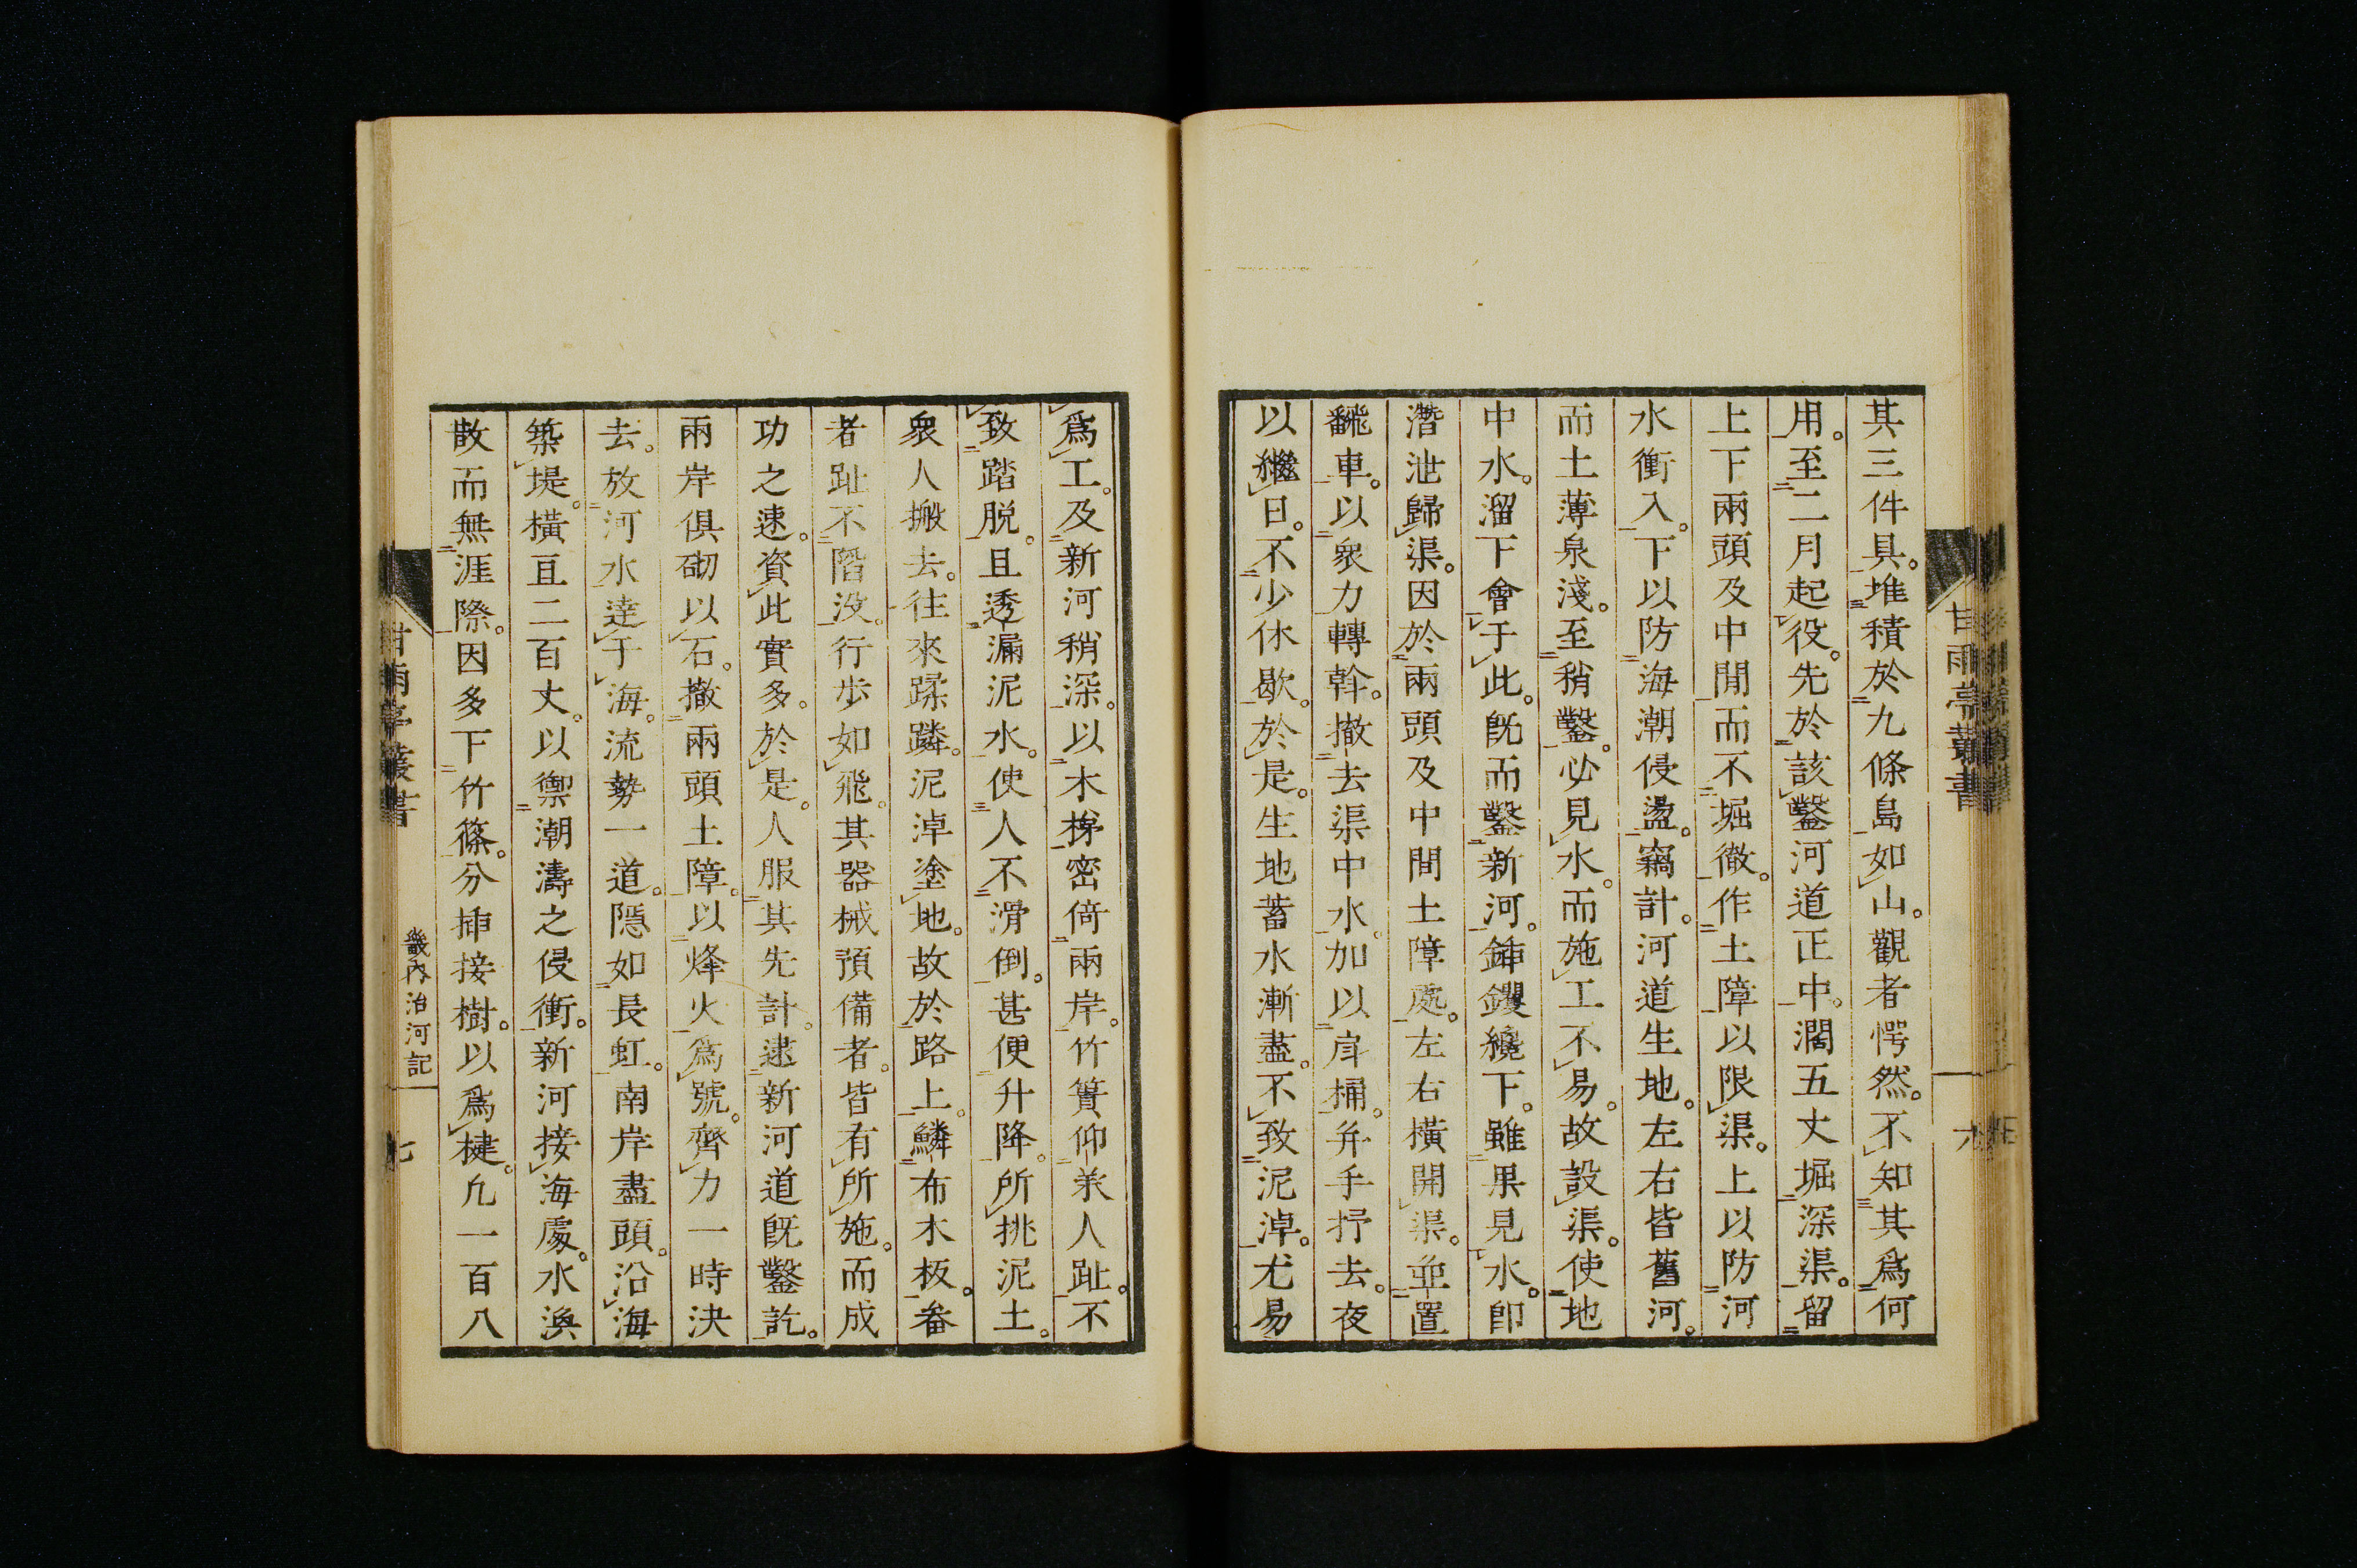 其三件具。堆積於九條島如山。觀者愕然。不知其爲何
用。至二月起役。先於該鑿河道正中。濶五丈堀深渠。留
上下兩頭及中間而不堀徹。作土障以限渠。上以防河
水衝入。下以防海潮侵盪。竊計。河道生地。左右皆舊河。
而土薄泉淺。至稍鑿。必見水。而施工不易。故設渠。使地
中水。溜下會于此。既而鑿新河。鍤钁纔下。雖果見水。卽
潛泄歸渠。因於兩頭及中間土障處。左右橫開渠。並置
飜車。以衆力轉斡。撤去渠中水。加以戽桶。并手抒去。夜
以繼日。不少休歇。於是。生地蓄水漸盡。不致泥淖。尤易
爲工。及新河稍深。以木梯密倚兩岸。竹簀仰羕人趾。不
致踏脱。且透漏泥水。使人不滑倒。甚便升降。所挑泥土。
衆人搬去。往來蹂躪。泥淖塗地。故於路上。鱗布木板。畚
者趾不陷没。行步如飛。其器械預備者。皆有所施。而成
功之速。資此實多。於是。人服其先計。逮新河道既鑿訖。
兩岸俱砌以石。撤兩頭土障。以烽火爲號。齊力一時決
去。放河水達于海。流勢一道。隱如長虹。南岸盡頭。沿海
築堤。橫亘二百丈。以禦潮濤之侵衝。新河接海處。水渙
散而無涯際。因多下竹篠。分揷接樹。以爲楗。凢一百八
甘雨亭叢書
畿內治河記
七